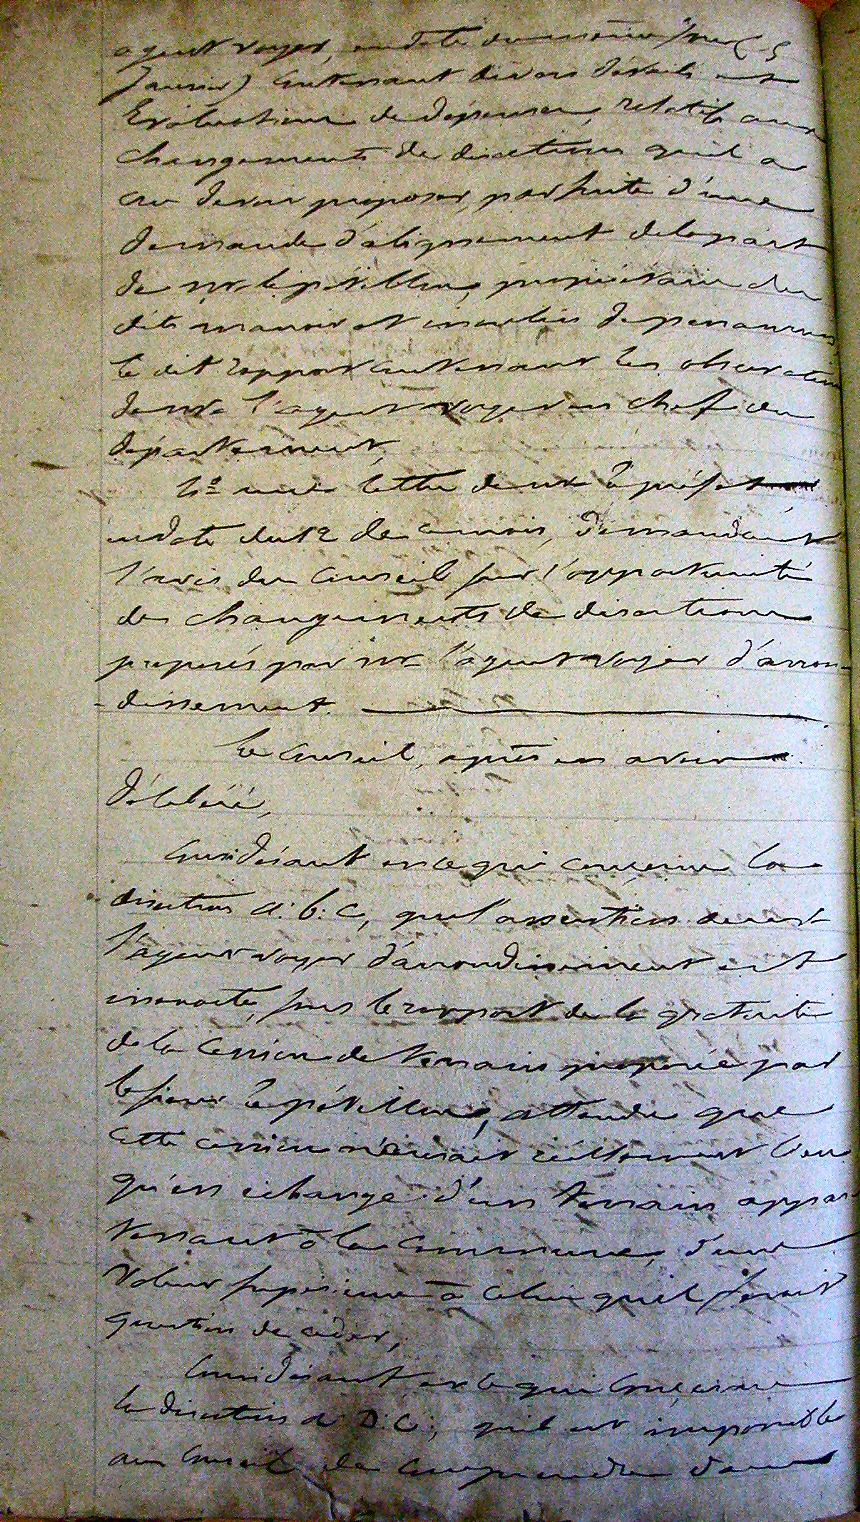 agent voyer, en date du même jour (5
Janvier) contenant divers détails et
Evaluations de dépenses, relatifs aux
changements de directions qu'il a
cru devoir proposer, par suite d'une
demande d'alignement de la part
de mr. le pétillon, propriétaire du
dits manoir et
le dit rapport contenant les observations
de mr. l'agent voyer en chef du
département,
4º une lettre de mr. le préfet
en date du 12 de ce mois, demandant
l'avis du Conseil sur l'opportunité
des changements de directions
proposés par mr. l'agent voyer d'arron-
-dissement.
Le Conseil, après en avoir
délibéré,
Considérant en ce qui concerne la
direction A. B. C, que l'assertion de mr.
l'agent voyer d'arrondissement est
inexacte, sous le rapport de la gratuité
de la Cession de terrain proposée par
le sieur le pétillon, attendu que
cette cession n'aurait réellement lieu
qu'en échange d'un terrain appar
tenant à la Commune, d'une
valeur supérieure à celui qu'il serait
question de céder,
Considérant en ce qui concerne
la direction A D. C., qu'il est impossible
au Conseil de comprendre dans